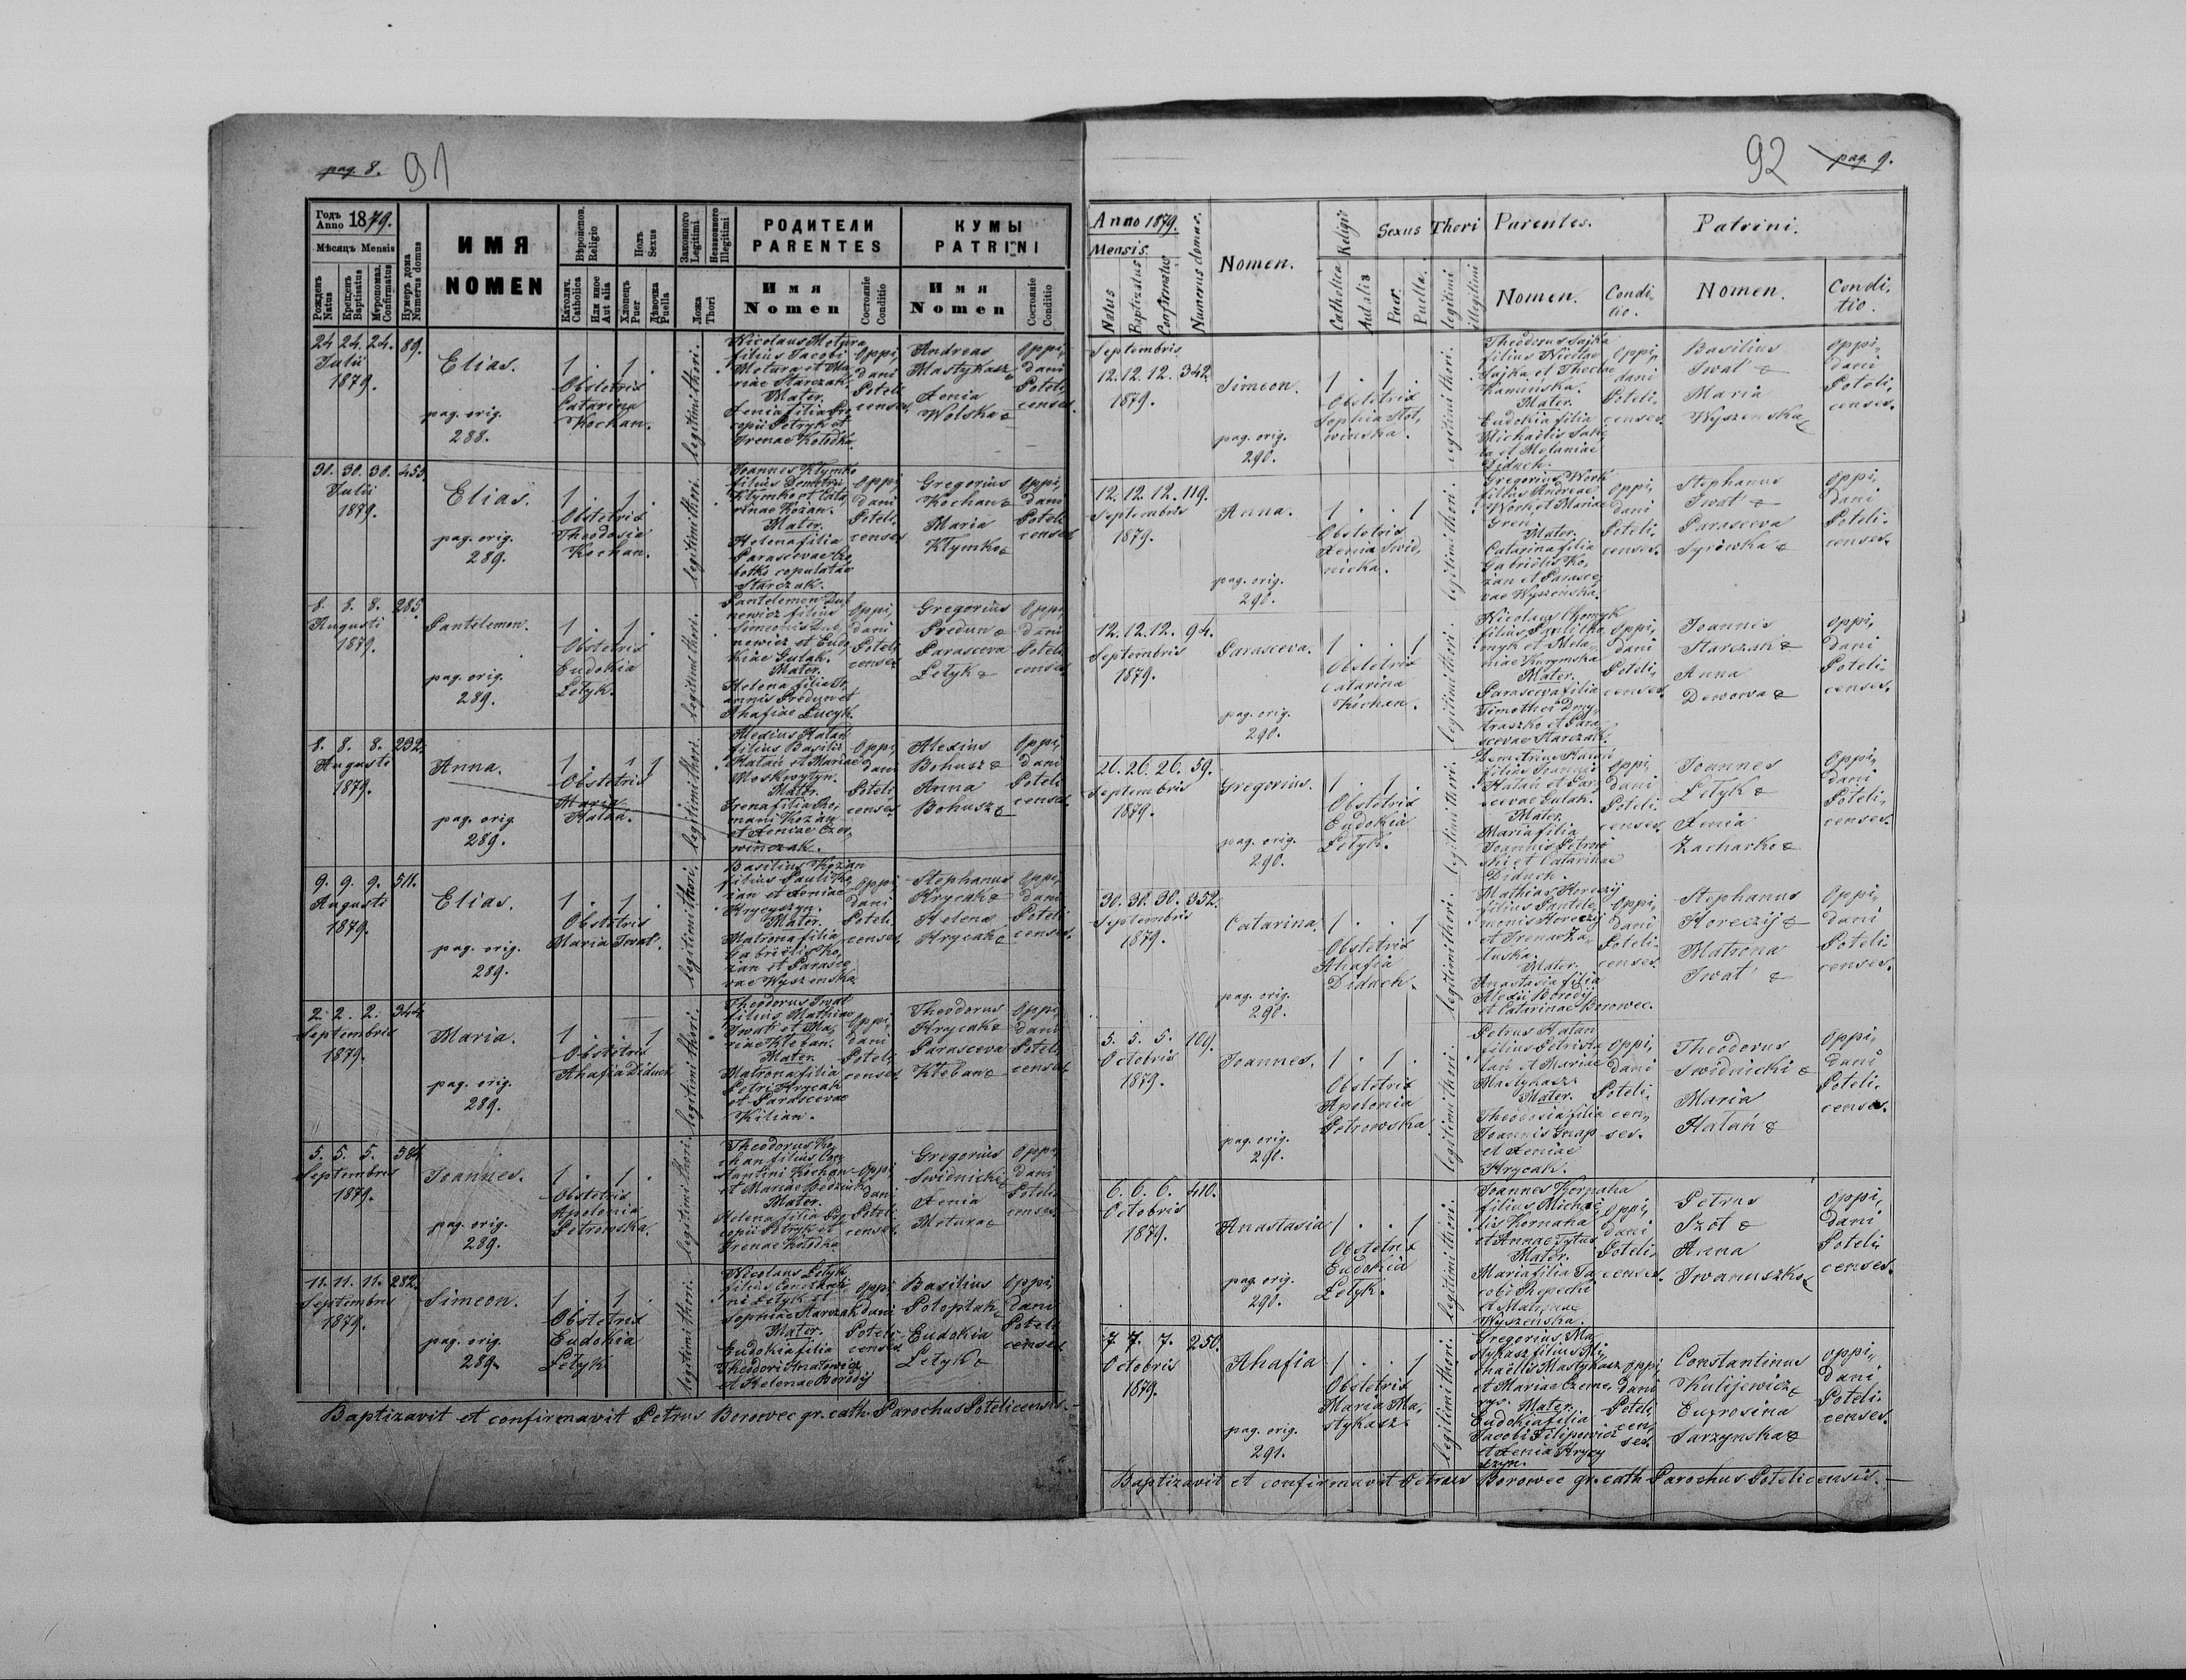 pag. 8. 91
Годъ Anno 1879.
Мѣсяцъ Mensis
Рожденъ Natus
Крещенъ Baptisatus
Мѵропомаз. Confirmatus
Нумеръ дома Numerus domus
ИМЯ
NOMEN
Вѣроиспов. Religio
Католич. Catholica
Или иное Aut alia
Полъ Sexus
Хлопецъ Puer
Дѣвочка Puella
Законного Legitimi
Незаконного Illegitimi
Ложа Thori
РОДИТЕЛИ
PARENTES
Имя
Nomen
Состояніе Conditio
КУМЫ
PATRINI
Имя
Nomen
Состояніе Conditio
24 24. 24. 89.
Julii
1879.
Elias.
pag. orig.
288.
1 . 1 .
Obstetrix
Catarina
Kochan.
legitimi thori.
Nicolaus Metura
filius Jacobi
Metura et Ma,
riae Starczak.
Mater.
Xenia filia Pro,
copii Petryk et
Irenae Kołodka
Oppi,
dani
Poteli,
censes
Andreas
Mastykasz &
Xenia
Wolska &
Oppi,
dani
Poteli,
censes.
30. 30. 30. 455.
Julii
1879.
Elias.
pag. orig.
289.
1 . 1 .
Obstetrix
Theodosia
Kochan.
legitimi thori.
Joannes Kłymko
filius Demetrii
Kłymko et Cata,
rinae Kozan.
Mater.
Helena filia
Parascevae
copulatae
Starczak.
Oppi,
dani
Poteli,
censes
Gregorius
Kochan &
Maria
Kłymko &
Oppi,
dani
Poteli,
censes
8. 8. 8. 285.
Augusti
1879.
Pantelemon.
pag. orig.
289.
1 . 1 .
Obstetrix
Eudokia
Letyk.
legitimi thori.
Pantelemon Dub
newicz filius
Simeonis Dub,
newicz et Eudo,
kiae Gulak.
Mater.
Helena filia Jo,
annis Predun et
Ahafiae Łucyk.
Oppi,
dani
Poteli,
censes
Gregorius
Predun &
Parasceva
Letyk &
Oppi,
dani
Poteli,
censes
8. 8. 8. 232.
Augusti
1879.
Anna.
pag. orig
289.
1 . 1 1
Obstetrix
Maria
Hałan.
legitimi thori.
Alexius Hałan
filius Basilii
Hałan et Mariae
Moskwytyn.
Mater.
Irena filia Ro,
mani Kozan
et Xeniae Czer,
winczak.
Oppi,
dani
Poteli
censes
Alexius
Bohusz &
Anna
Bohusz &
Oppi,
dani
Poteli
censes
9. 9. 9. 511.
Augusti
1879.
Elias.
pag. orig.
289.
1 . 1 .
Obstetrix
Maria Iwat.
legitimi thori.
Basilius Kozan
filius Pauli Ko,
zan et Xeniae
Hrycyszyn.
Mater.
Matrona filia
Gabrielis Ko,
zan et Parasce
vae Wyszenska
Oppi,
dani
Poteli
censes
Stephanus
Hrycak &
Helena
Hrycak &
Oppi,
dani
Poteli
censes.
2. 2. 2. 344.
Septembris
1879.
Maria.
pag. orig.
289.
1 . . 1
Obstetrix
Ahafia Diduch
legitimi thori.
Theodorus Iwat
filius Mathiae
Iwat et Ma,
riae Kleban.
Mater.
Matrona filia
Petri Hrycak
et Parascevae
Kilian.
Oppi,
dani
Poteli,
censes
Theodorus
Hrycak &
Parasceva
Kleban &
Oppi,
dani
Poteli,
censes
5. 5. 5. 584
Septembris
1879.
Joannes.
pag. orig.
289.
1 . 1 .
Obstetrix
Apolonia
Petrowska.
legitimi thori.
Theodorus Ko,
chan filius Con,
stantini Kochan
et Mariae
Mater.
Helena filia Pro,
copii Petryk et
Irenae Kołodka
Oppi
dani
Poteli
censes
Gregorius
Swidnicki &
Xenia
Metura &
Oppi,
dani
Poteli
censes.
11. 11. 11. 282.
Septembris
1879.
Simeon.
pag. orig.
289.
1 . 1 .
Obstetrix
Eudokia
Letyk.
legitimi thori.
Nicolaus Letyk
filius Constanti
ni Letyk et
Sophiae Starczak
Mater.
Eudokia filia
Theodori Hnatewicz
et Helenae Borodij
Oppi
dani
Poteli
censes
Basilius
Potoptak &
Eudokia
Letyk &
Oppi,
dani
Poteli
censes
Baptizavit et confirmavit Petrus Borowec gr. cath. Parochus Potelicensis.
92 pag. 9.
Anno 1879.
Mensis.
Natus
Baptizatus
Confirmatus
Numerus domus.
Nomen.
Religio
Catholica
Aut alia
Sexus
Puer.
Puella.
Thori
legitimi
illegitimi
Parentes.
Nomen.
Condi,
tio.
Patrini.
Nomen.
Condi,
tio.
Septembris
12. 12. 12. 342.
1879.
Simeon.
pag. orig.
290.
1 . 1 .
Obstetrix
Sophia Stot,
winska.
legitimi thori.
Theodorus Sajka
filius Nicolae
Sajka et Theclae
Kaminska.
Mater.
Eudokia filia
Michaelis Sak,
ła et Melaniae
Diduch.
Oppi,
dani
Poteli,
censes.
Basilius
Iwat &
Maria
Wyszenska &
Oppi,
dani
Poteli,
censes.
12. 12. 12. 119.
Septembris
1879.
Anna.
pag. orig.
290.
1 . . 1
Obstetrix
Xenia Swid,
nicka.
legitimi thori.
Gregorius Work
filius Andreae
Work et Mariae
Gren
Mater.
Catarina filia
Gabrielis Ko,
zan et Parasce,
vae Wyszenska.
Oppi,
dani
Poteli,
censes.
Stephanus
Iwat &
Parasceva
Syrowka &
Oppi,
dani
Poteli,
censes.
12. 12. 12. 94.
Septembris
1879.
Parasceva.
pag. orig.
290.
1 . . 1
Obstetrix
Catarina
Kochan.
legitimi thori.
Nicolaus Chomyk
filius Pauli Cho,
myk et Mela,
niae Kurymska
Mater.
Parasceva filia
Timothei Dmy,
traszko et Para,
scevae Starczak.
Oppi,
dani
Poteli,
censes.
Joannis
Starczak &
Anna
Dewowa &
Oppi,
dani
Poteli,
censes.
26. 26. 26. 59.
Septembris
1879.
Gregorius.
pag. orig.
290.
1 . 1 .
Obstetrix
Eudokia
Letyk.
legitimi thori.
Demetrius Hałan
filius Joannis
Hałan et Para,
scevae Gulak.
Mater.
Maria filia
Joannis Petrow
ski et Catarinae
Diduch.
Oppi,
dani
Poteli,
censes.
Joannes
Letyk &
Xenia
Zacharko &
Oppi,
dani
Poteli,
censes.
30. 30. 30. 352.
Septembris
1879.
Catarina.
pag. orig.
290.
1 . . 1
Obstetrix
Ahafia
Diduch.
legitimi thori.
Mathias Horeczij
filius Pantele,
monis Horeczij
et Irenae Za,
łuska.
Mater.
Anastasia filia
Alexii Borodij
et Catarinae Borowec.
Oppi,
dani
Poteli,
censes.
Stephanus
Horeczij &
Matrona
Iwat &
Oppi,
dani
Poteli,
censes.
5. 5. 5. 109.
Octobris
1879.
Joannes.
pag. orig.
290.
1 . 1 .
Obstetrix
Apolonia
Petrowska.
legitimi thori.
Petrus Hałan
filius Petri Ha,
łan et Mariae
Mastykasz.
Mater.
Theodosia filia
Joannis Gnap
et Xeniae
Hrycak.
Oppi,
dani
Poteli,
cen,
ses.
Theodorus
Swidnicki &
Maria
Hałan &
Oppi,
dani
Poteli,
censes.
6. 6. 6. 410.
Octobris
1879.
Anastasia
pag. orig.
290.
1 . . 1
Obstetrix
Eudokia
Letyk.
legitimi thori.
Joannes Kornaha
filius Michae,
lis Kornaha
et Annae Tytus
Mater.
Maria filia Ja,
cobi Rzepecki
et Matronae
Wyszenska.
Oppi,
dani
Poteli,
censes.
Petrus
Szot &
Anna
Iwanuszko &
Oppi,
dani
Poteli,
censes.
7. 7. 7. 250.
Octobris
1879.
Ahafia
pag. orig.
291.
1 . . 1
Obstetrix
Maria Ma,
stykasz.
legitimi thori.
Gregorius Ma,
stykasz filius Mi,
chaëlis Mastykasz
et Mariae Czeme,
rys. Mater.
Eudokia filia
Jacobi Filipowicz
et Xenia Hrycy
szyn.
Oppi
dani
Poteli,
cen,
ses.
Constantinus
Kulijewicz &
Eufrosina
Sarzynska &
Oppi,
dani
Poteli
censes.
Baptizavit et confirmavit Petrus Borowec gr. cath. Parochus Potelicensis.